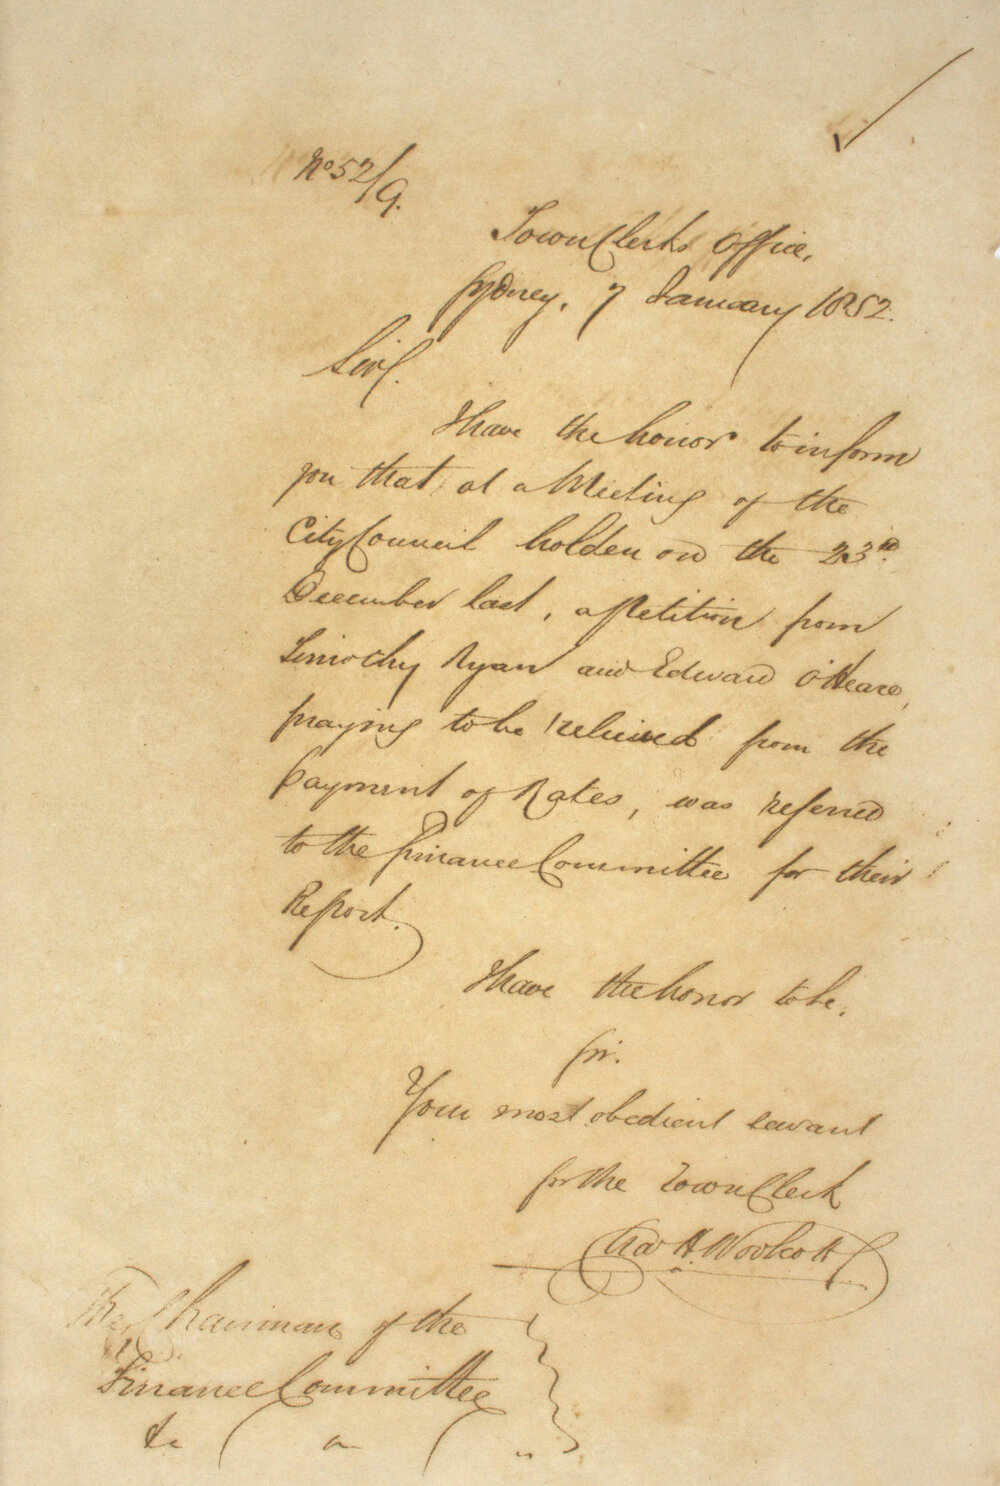 No 52/9.
Town Clerks Office,
Sydney, 7 January 1852.
Sir,
I have the honor to inform
you that at a Meeting of the
City Council holden on the 23rd
December last, a Petition from
Timothy Ryan and Edward O'Heare,
praying to be relieved from the
payment of Rates, was referred
to the Finance Committee for their
Report.
I have the honor to be,
Sir.
Your most obedient servant
for the Town Clerk
Chas H. Woolcott
The Chairman of the
Finance Committee
&c